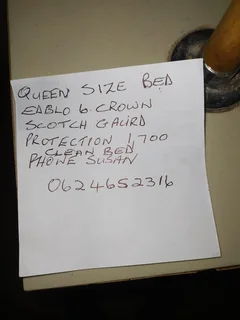 QUEEN SIZE BED
EDBLO 6 CROWN
SCOTCH GAURD
PROTECTION 1700
CLEAN BED
PHONE SUSAN
0624652316